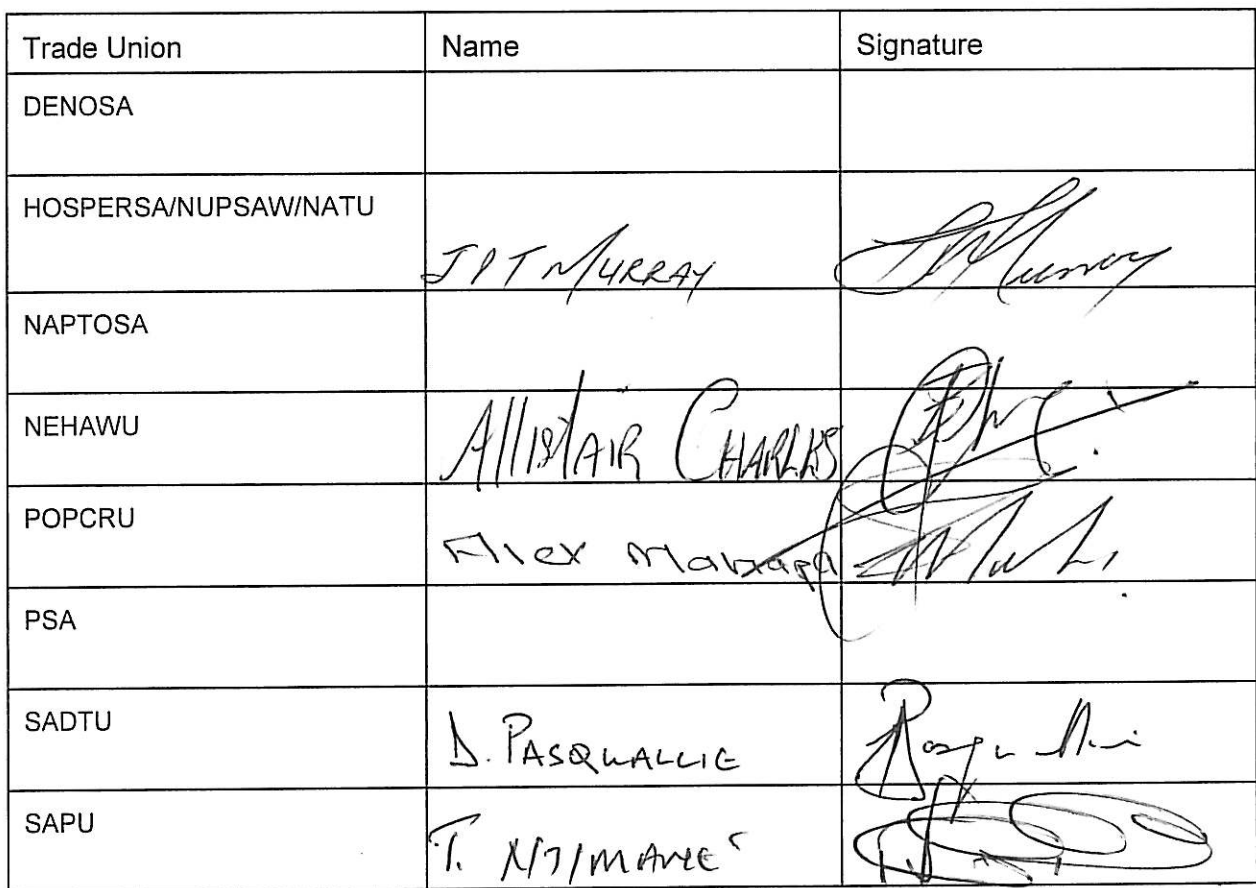 Trade Union Name Signature
DENOSA
HOSPERSA/NUPSAW/NATU
JPT MURRAY
NAPTOSA
NEHAWU
Allistair Charles
POPCRU
Alex
PSA
SADTU
D. PASQUALLIE
SAPU
T.